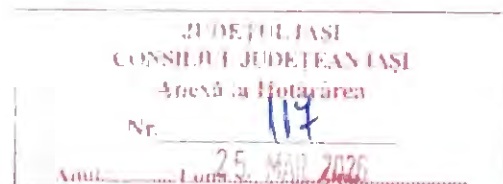 JUDEŢUL IAŞI
CONSILIUL JUDEŢEAN IAŞI
Anexă la Hotărârea
Nr. 117
Anul Luna 25. MAR. 2026